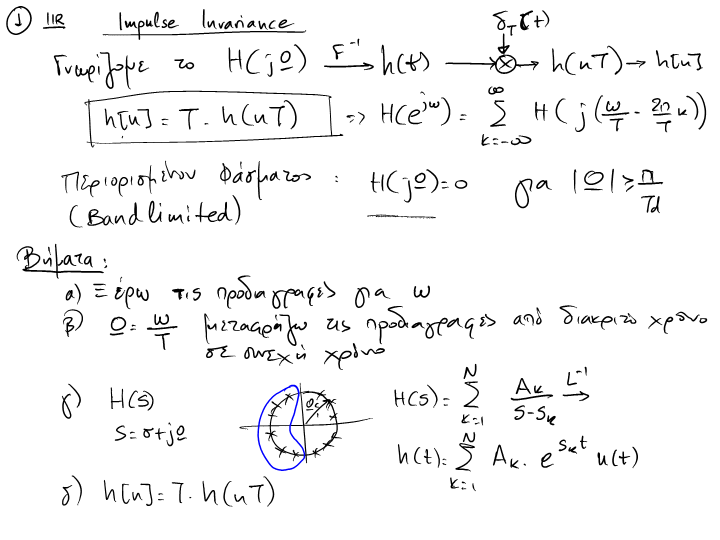 ① IIR Impulse Invariance δ_T(t)
Γνωρίζομε το H(jΩ) F⁻¹→ h(t) → ⊗ → h(nT) → h[n]
h[n] = T. h(nT) => H(e^{jω}) = Σ_{k=-∞}^{∞} H(j(ω/T - 2π/T k))
Περιορισμένου Φάσματος : H(jΩ)=0 για |Ω| ≥ π/Td
(Bandlimited)
Βήματα:
α) Ξέρω τις προδιαγραφές για ω
β) Ω = ω/T μεταφράζω τις προδιαγραφές από διακριτό χρόνο
σε συνεχή χρόνο
γ) H(s) Ωc H(s) = Σ_{k=1}^{N} A_k/(s-s_k) L⁻¹→
s=σ+jΩ
h(t) = Σ_{k=1}^{N} A_k. e^{s_k t} u(t)
δ) h[n] = T. h(nT)